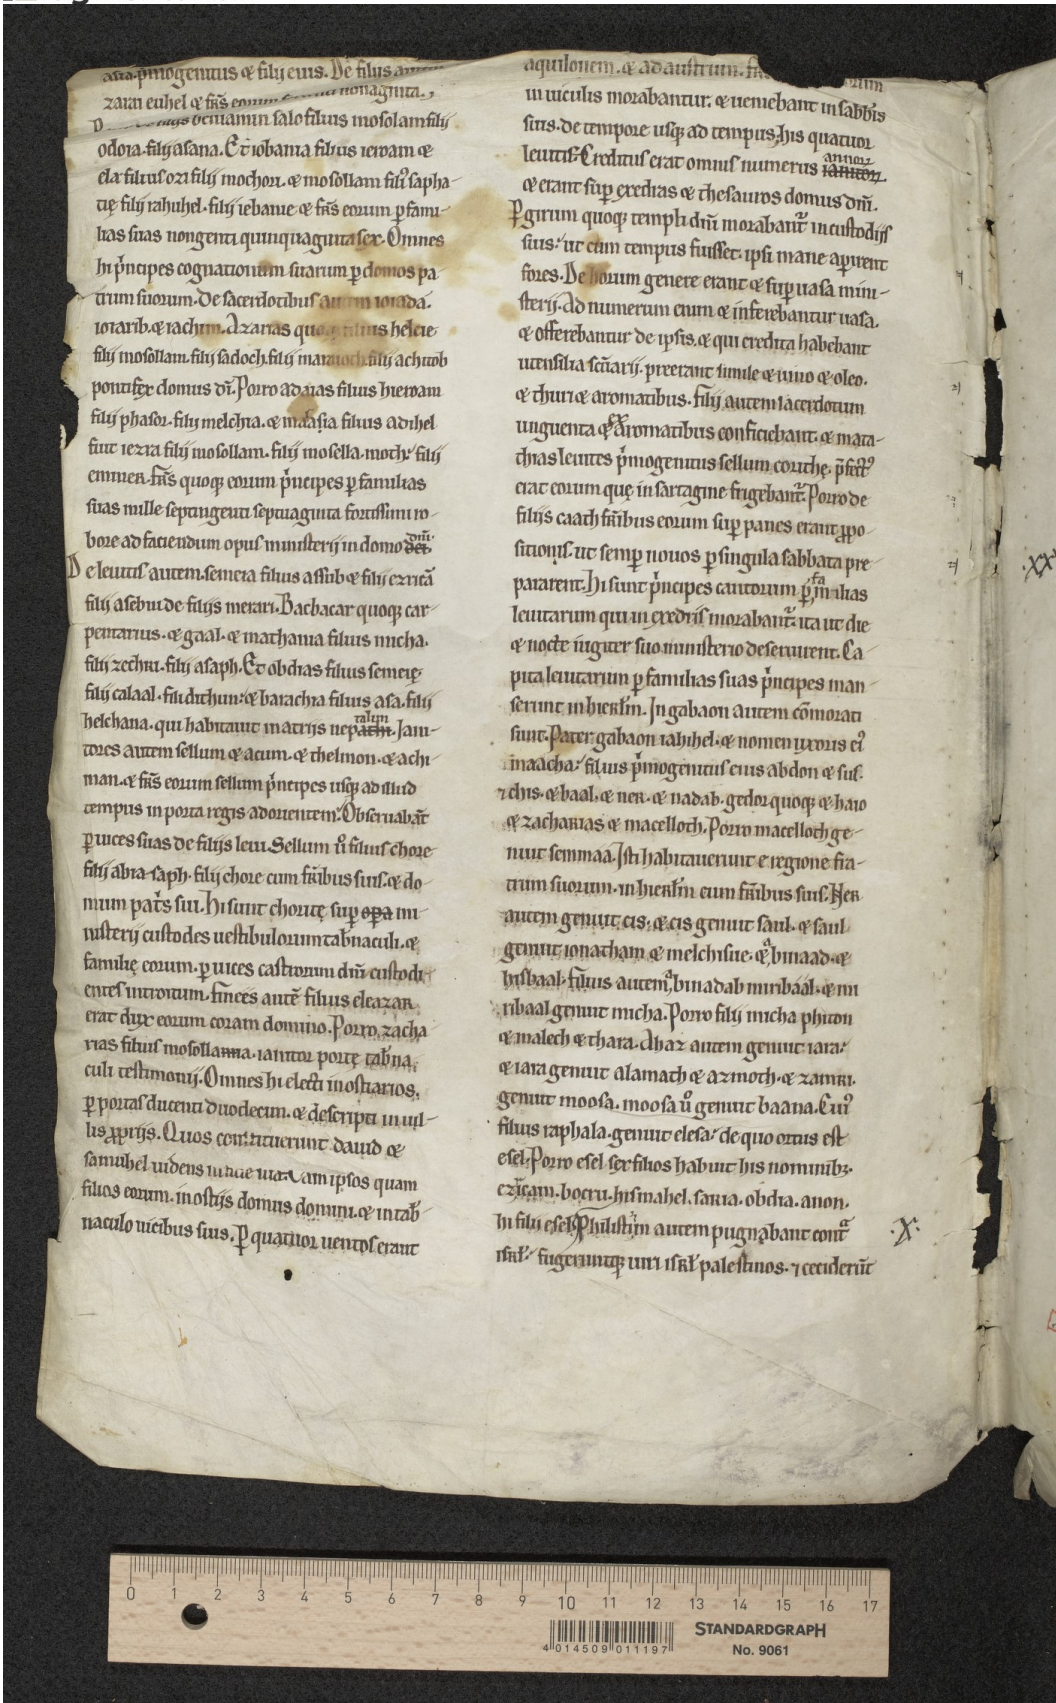 asia p̄mogenitus & filij eius. De filijs
zarai euhel & fr̄s eorum nonaginta.
beniamin salo filius mosolam filij
odoia. filij asana. Et iobania filius ieroam &
ela filius ozi filij mochori. & mosollam filiꝰ sapha-
tię filij rahuhel. filij iebanie & fr̄s eorum ꝑ fami-
lias suas nongenti quinquaginta sex. Omnes
hi p̄ncipes cognationum suarum ꝑ domos pa
trum suorum. De sacerdotibus autem ioiada.
ioiarib. & iachim. Azarias quoq; filius helcie
filij mosollam. filij sadoch. filij maraioth. filij achitob
pontifex domus dī. Porro adaias filius hieroam
filij phasor. filij melchia. & maasia filius adihel
filij iezra filij mosollam. filij mosella. moth. filij
emmer. fr̄s quoque eorum p̄ncipes ꝑ familias
suas mille septingenti septuaginta fortissimi ro-
bore ad faciendum opus ministerij in domo dei dn̄i.
De leuitis autem. semeia filius assub & filij ezricā
filij asebiu de filijs merari. Bacbacar quoque car-
pentarius. & gaal. & mathania filius micha.
filij zechri. filij asaph. Et obdias filius semeię.
filij calaal. filij dithun. & barachia filius asa. filij
helchana. qui habitauit in atrijs nepathi talim. Jani-
tores autem sellum & acum. & thelmon. & achi-
man. & fr̄s eorum sellum p̄nceps usq; ad illud
tempus in porta regis ad orientem. Obseruabāt
ꝑ uices suas de filijs leui. Sellum u̇ filius chore
filij abia-saph. filij chore cum fr̄ibus suis. & do-
mum pat̄s sui. Hi sunt choritę sup̄ opa mi-
nisterij custodes uestibulorum tab̄naculi. &
familię eorum. ꝑ uices castrorum dn̄i custodi-
entes introitum. finees autē filius eleazar
erat dux eorum coram domino. Porro zacha
rias filius mosollama. ianitor portę tab̄na
culi testimonij. Omnes hi electi in ostiarios.
ꝑ portas ducenti duodecim. & descripti in uil-
lis ꝓprijs. Quos constituerunt dauid &
samuhel uidens in fide sua. Tam ipsos quam
filios eorum. in ostijs domus domini. & in tab̄
naculo uicibus suis. Ꝑ quatuor uentos erant
aquilonem. & ad austrum. fr̄s
in uiculis morabantur. & ueniebant in sabb̄is
suis. de tempore usq; ad tempus. his quatuor
leuitis. Creditus erat omnis numerus ianitorꝝ
& erant sup̄ exedras & thesauros domus dn̄i.
Ꝑ girum quoq; templi dn̄i morabant̄ in custodijs
suis. ut cum tempus fuisset. ipsi mane aperirent
fores. De horum genere erant & sup̄ uasa mini-
sterij. Ad numerum enim & inferebantur uasa.
& offerebantur de ipsis. & qui credita habebant
utensilia sc̄uarij. preerant simile & uino & oleo.
& thuri & aromatibus. filij autem sacerdotum
unguenta ex aromatibus conficiebant. & mata-
thias leuites p̄mogenitus sellum corithę. p̄fectꝰ
erat eorum quę in sartagine frigebant̄. Porro de
filijs caath fr̄ibus eorum sup̄ panes erant ꝓpo-
sitionis. ut semp̄ nouos ꝑ singula sabbata pre
pararent. Hi sunt p̄ncipes cantorum ꝑ familias
leuitarum qui in exedris morabant̄. ita ut die
& nocte iugiter suo ministerio deseruirent. Ca-
pita leuitarum ꝑ familias suas p̄ncipes man-
serunt in hierl̄m. In gabaon autem cōmorati
sunt. Pater gabaon iahihel. & nomen uxoris eiꝰ
maacha. filius p̄mogenitus eius abdon & sus.
⁊ chis. & baal. & ner. & nadab. gedor quoque & haio
& zacharias & macelloth. Porro macelloth ge-
nuit semmaa. Isti habitauerunt e regione fra-
trum suorum. in hierl̄m cum fr̄ibus suis. Ner
autem genuit cis. & cis genuit saul. & saul
genuit ionatham & melchisue. & abinaad. &
hisbaal. filius autem binadab miribaal. & mi
ribaal genuit micha. Porro filij micha phiton
& malech & thara. Ahaz autem genuit iara.
& iara genuit alamath & azmoth. & zamri.
genuit moosa. moosa u̇ genuit baana. Cuiꝰ
filius raphala. genuit elesa. de quo ortus est
esel. Porro esel sex filios habuit his nominibꝫ.
ezricam. bocru. hismahel. saria. obdia. anon.
hi filij esel. Philistijm autem pugnabant contᵃ
isrl̄. fugeruntq; uiri isrl̄ palestinos. ⁊ ceciderūt
·X·
·XX
0 1 2 3 4 5 6 7 8 9 10 11 12 13 14 15 16 17
STANDARDGRAPH
No. 9061
4 014509 011197